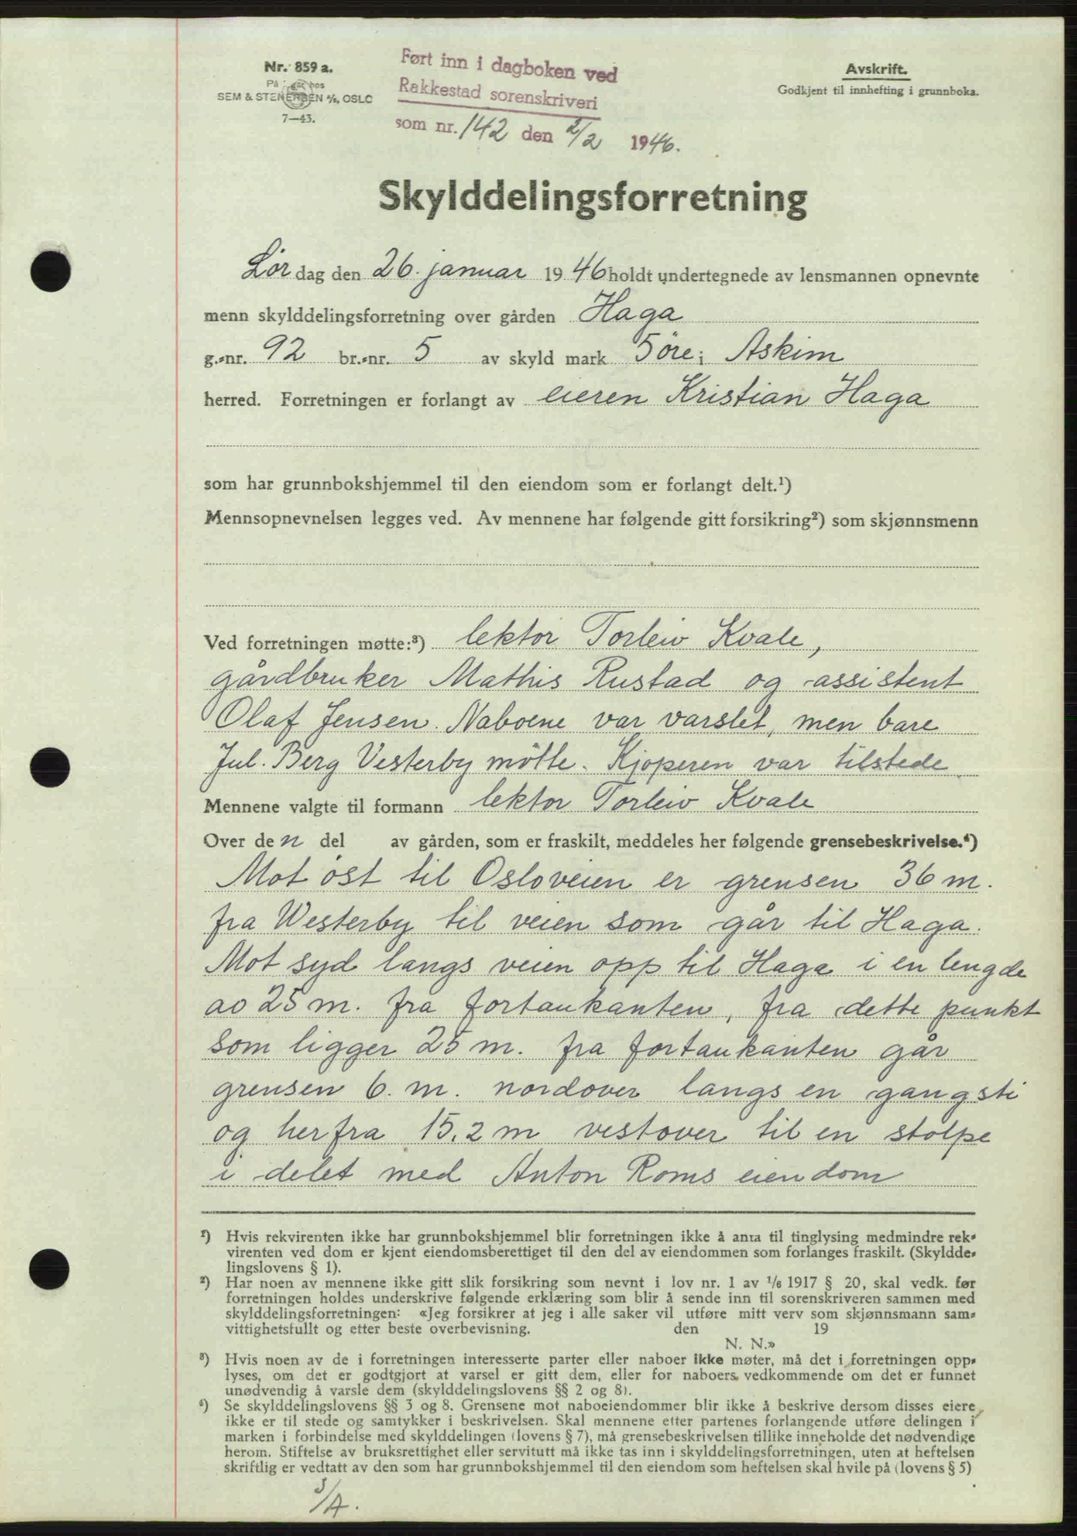 Nr. 859 a.
På lager hos
SEM & STENERSEN A/S, OSLO
7—43.
Ført inn i dagboken ved
Rakkestad sorenskriveri
som nr. 142 den 2/2 1946.
Avskrift.
Godkjent til innhefting i grunnboka.
Skylddelingsforretning
Lør dag den 26. januar 1946 holdt undertegnede av lensmannen opnevnte
menn skylddelingsforretning over gården Haga
g.-nr. 92 br.-nr. 5 av skyld mark 5 øre i Askim
herred. Forretningen er forlangt av eieren Kristian Haga
som har grunnbokshjemmel til den eiendom som er forlangt delt.¹)
Mennsopnevnelsen legges ved. Av mennene har følgende gitt forsikring²) som skjønnsmenn
Ved forretningen møtte:³) lektor Torleiv Kvale,
gårdbruker Mathis Rustad og assistent
Olaf Jensen. Naboene var varslet, men bare
Jul. Berg Vesterby møtte. Kjøperen var tilstede.
Mennene valgte til formann lektor Torleiv Kvale
Over den del av gården, som er fraskilt, meddeles her følgende grensebeskrivelse.⁴)
Mot øst til Osloveien er grensen 36 m.
fra Westerby til veien som går til Haga.
Mot syd langs veien opp til Haga i en lengde
av 25 m. fra fortaukanten, fra dette punkt
som ligger 25 m. fra fortaukanten går
grensen 6. m. nordover langs en gangsti
og herfra 15,2 m vestover til en stolpe
i delet med Anton Roms eiendom
¹) Hvis rekvirenten ikke har grunnbokshjemmel blir forretningen ikke å anta til tinglysing medmindre rek-
virenten ved dom er kjent eiendomsberettiget til den del av eiendommen som forlanges fraskilt. (Skyldde-
lingslovens § 1).
²) Har noen av mennene ikke gitt slik forsikring som nevnt i lov nr. 1 av 1/6 1917 § 20, skal vedk. før
forretningen holdes underskrive følgende erklæring som blir å sende inn til sorenskriveren sammen med
skylddelingsforretningen: «Jeg forsikrer at jeg i alle saker vil utføre mitt verv som skjønnsmann sam-
vittighetsfullt og etter beste overbevisning. den 19
N. N.»
³) Hvis noen av de i forretningen interesserte parter eller naboer ikke møter, må det i forretningen opp-
lyses, om det er godtgjort at varsel er gitt dem, eller for naboers vedkommende om det er funnet
unødvendig å varsle dem (skylddelingslovens §§ 2 og 8).
⁴) Se skylddelingslovens §§ 3 og 8. Grensene mot naboeiendommer blir ikke å beskrive dersom disses eiere
ikke er til stede og samtykker i beskrivelsen. Skal mennene etter partenes forlangende utføre delingen i
marken i forbindelse med skylddelingen (lovens § 7), må grensebeskrivelsen tillike inneholde det nødvendige
herom. Stiftelse av bruksrettighet eller servitutt må ikke tas inn i skylddelingsforretningen, uten at heftelsen
skriftlig er vedtatt av den som har grunnbokshjemmel til den eiendom som heftelsen skal hvile på (lovens § 5)